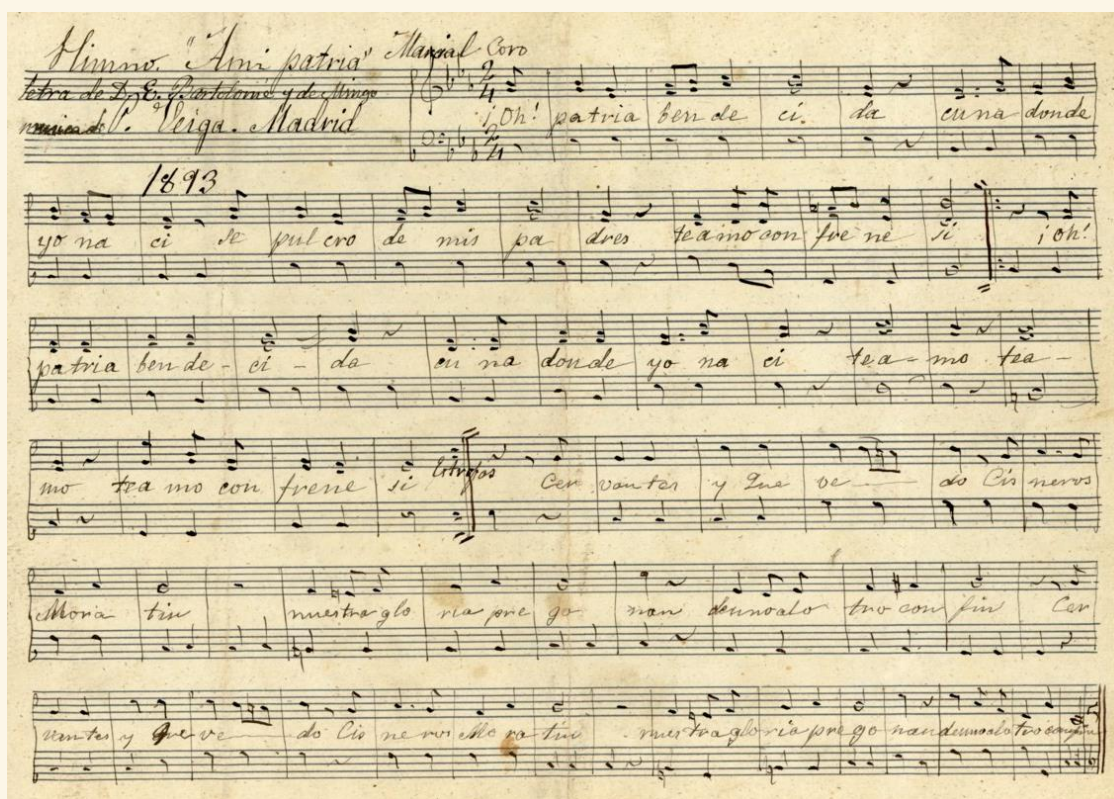 Himno. "A mi patria" Marcial Coro
letra de D. E. Bartolomé y de Mingo
música de P. Veiga. Madrid
¡Oh! patria ben de ci da cu na donde
1893
yo na ci se pul cro de mis pa dres te a mo con fre ne si ¡Oh!
patria ben de - ci - da cu na donde yo na ci te a - mo te a -
mo te a mo con frene si Estrofas Cer vantes y Que ve do Cis neros
Mora tin nuestra glo ria pre go nan de uno al o tro con fin Cer
vantes y Que ve do Cis neros Mo ra tin nuestra gloria pre go nan de uno al o tro confin